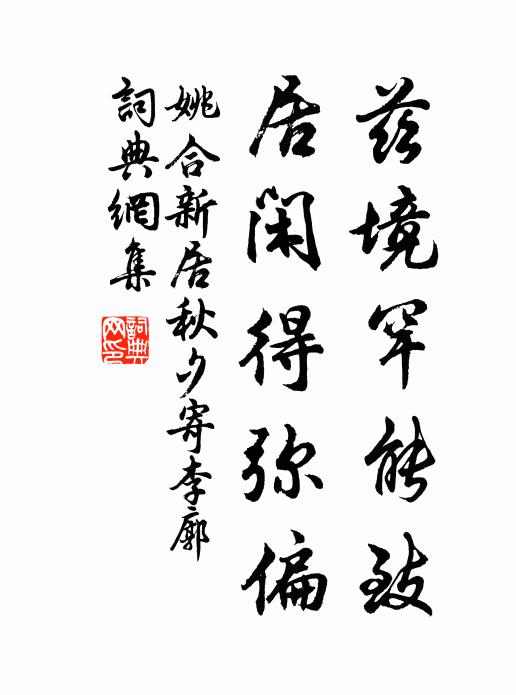 茲境罕能致
居閑得弥偏
姚合新居秋夕寄李廓
詞典網集
詞典網印